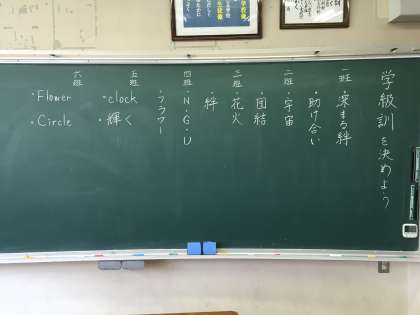 学級訓を決めよう
一班
・深まる絆
・助け合い
二班
・宇宙
・団結
三班
・花火
・絆
四班
・N・G・U
・フラワー
五班
・clock
・輝く
六班
・Flower
・Circle